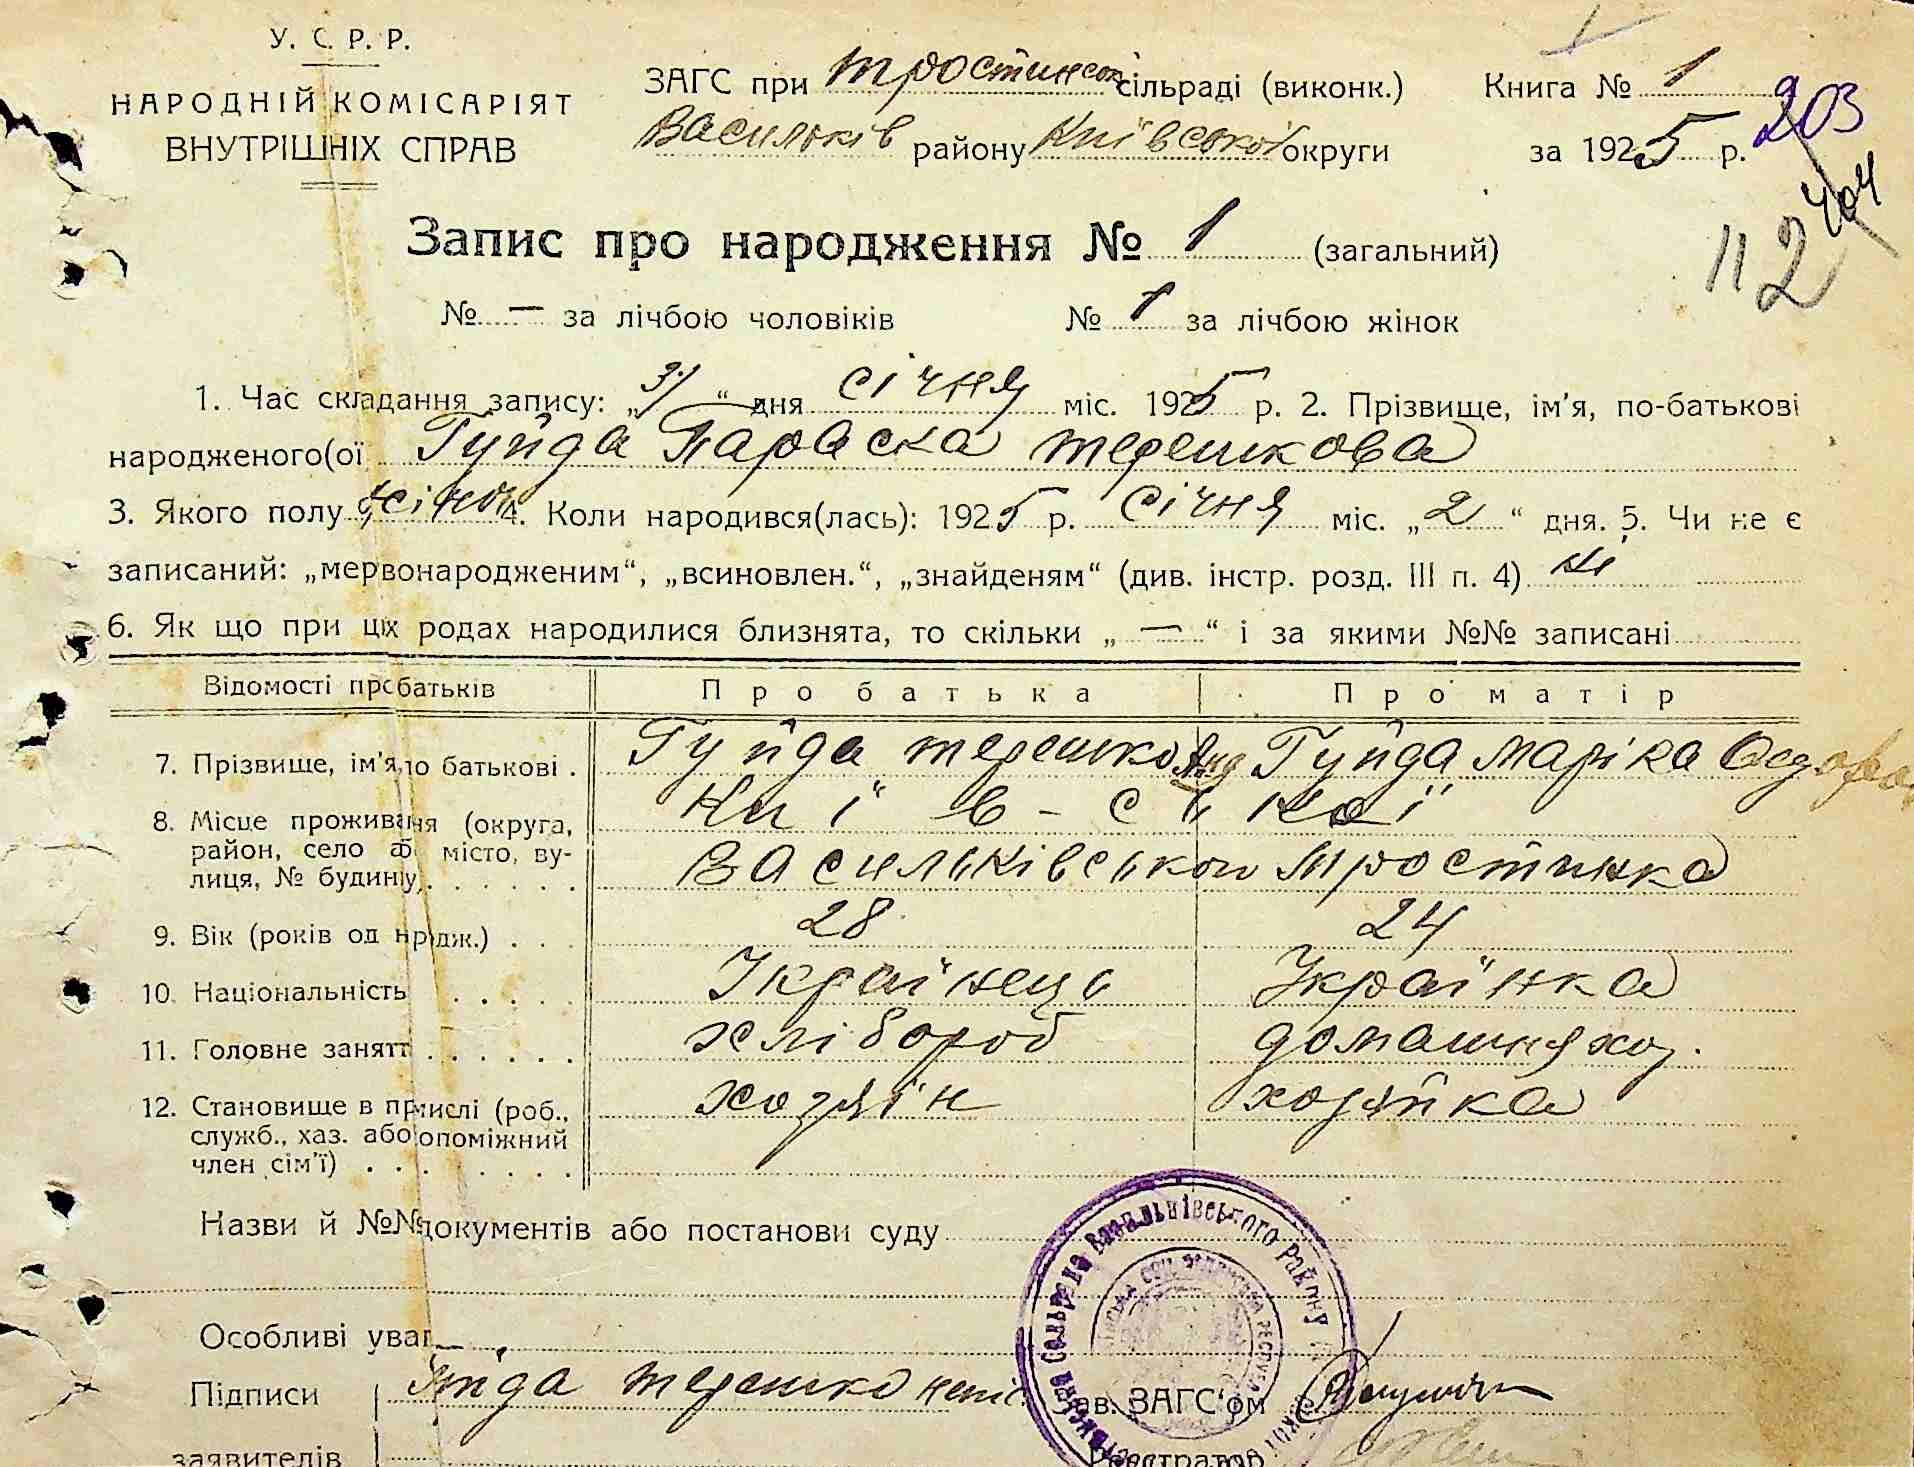 У. С. Р. Р.
НАРОДНІЙ КОМІСАРІЯТ
ВНУТРІШНІХ СПРАВ
ЗАГС при тростинск сільраді (виконк.)
Васильків району Київської округи
Книга № 1
за 1925 р.
203
404
112
Запис про народження № 1 (загальний)
№ — за лічбою чоловіків № 1 за лічбою жінок
1. Час складання запису: „3/“ дня січня міс. 1925 р. 2. Прізвище, ім'я, по-батькові
народженого(ої Гуйда Параска терешкова
3. Якого полу жіноч 4. Коли народився(лась): 1925 р. січня міс. „2“ дня. 5. Чи не є
записаний: „мервонародженим“, „всиновлен.“, „знайденям“ (див. інстр. розд. III п. 4) ні
6. Як що при ціх родах народилися близнята, то скільки „—“ і за якими №№ записані
Відомості про батьків Про батька Про матір
7. Прізвище, ім'я, по батькові . Гуйда терешко Анд Гуйда Маріка
8. Місце проживання (округа, Київ-ської
район, село або місто, ву- Васильківськой Тростинка
лиця, № будинку)
9. Вік (років од нродж.) . . . 28 24
10. Національність . . . . . Українець Українка
11. Головне занятт . . . . . . хлібороб домашня хоз.
12. Становище в промислі (роб., хозяїн хозяйка
служб., хаз. або допоміжний
член сім'ї) . . . . . . . .
Назви й №№ документів або постанови суду
Особливі уваг
Підписи Гуйда терешко непис. Зав. ЗАГС'ом
заявителів Реєстратор
Сільрада Васильківського Району